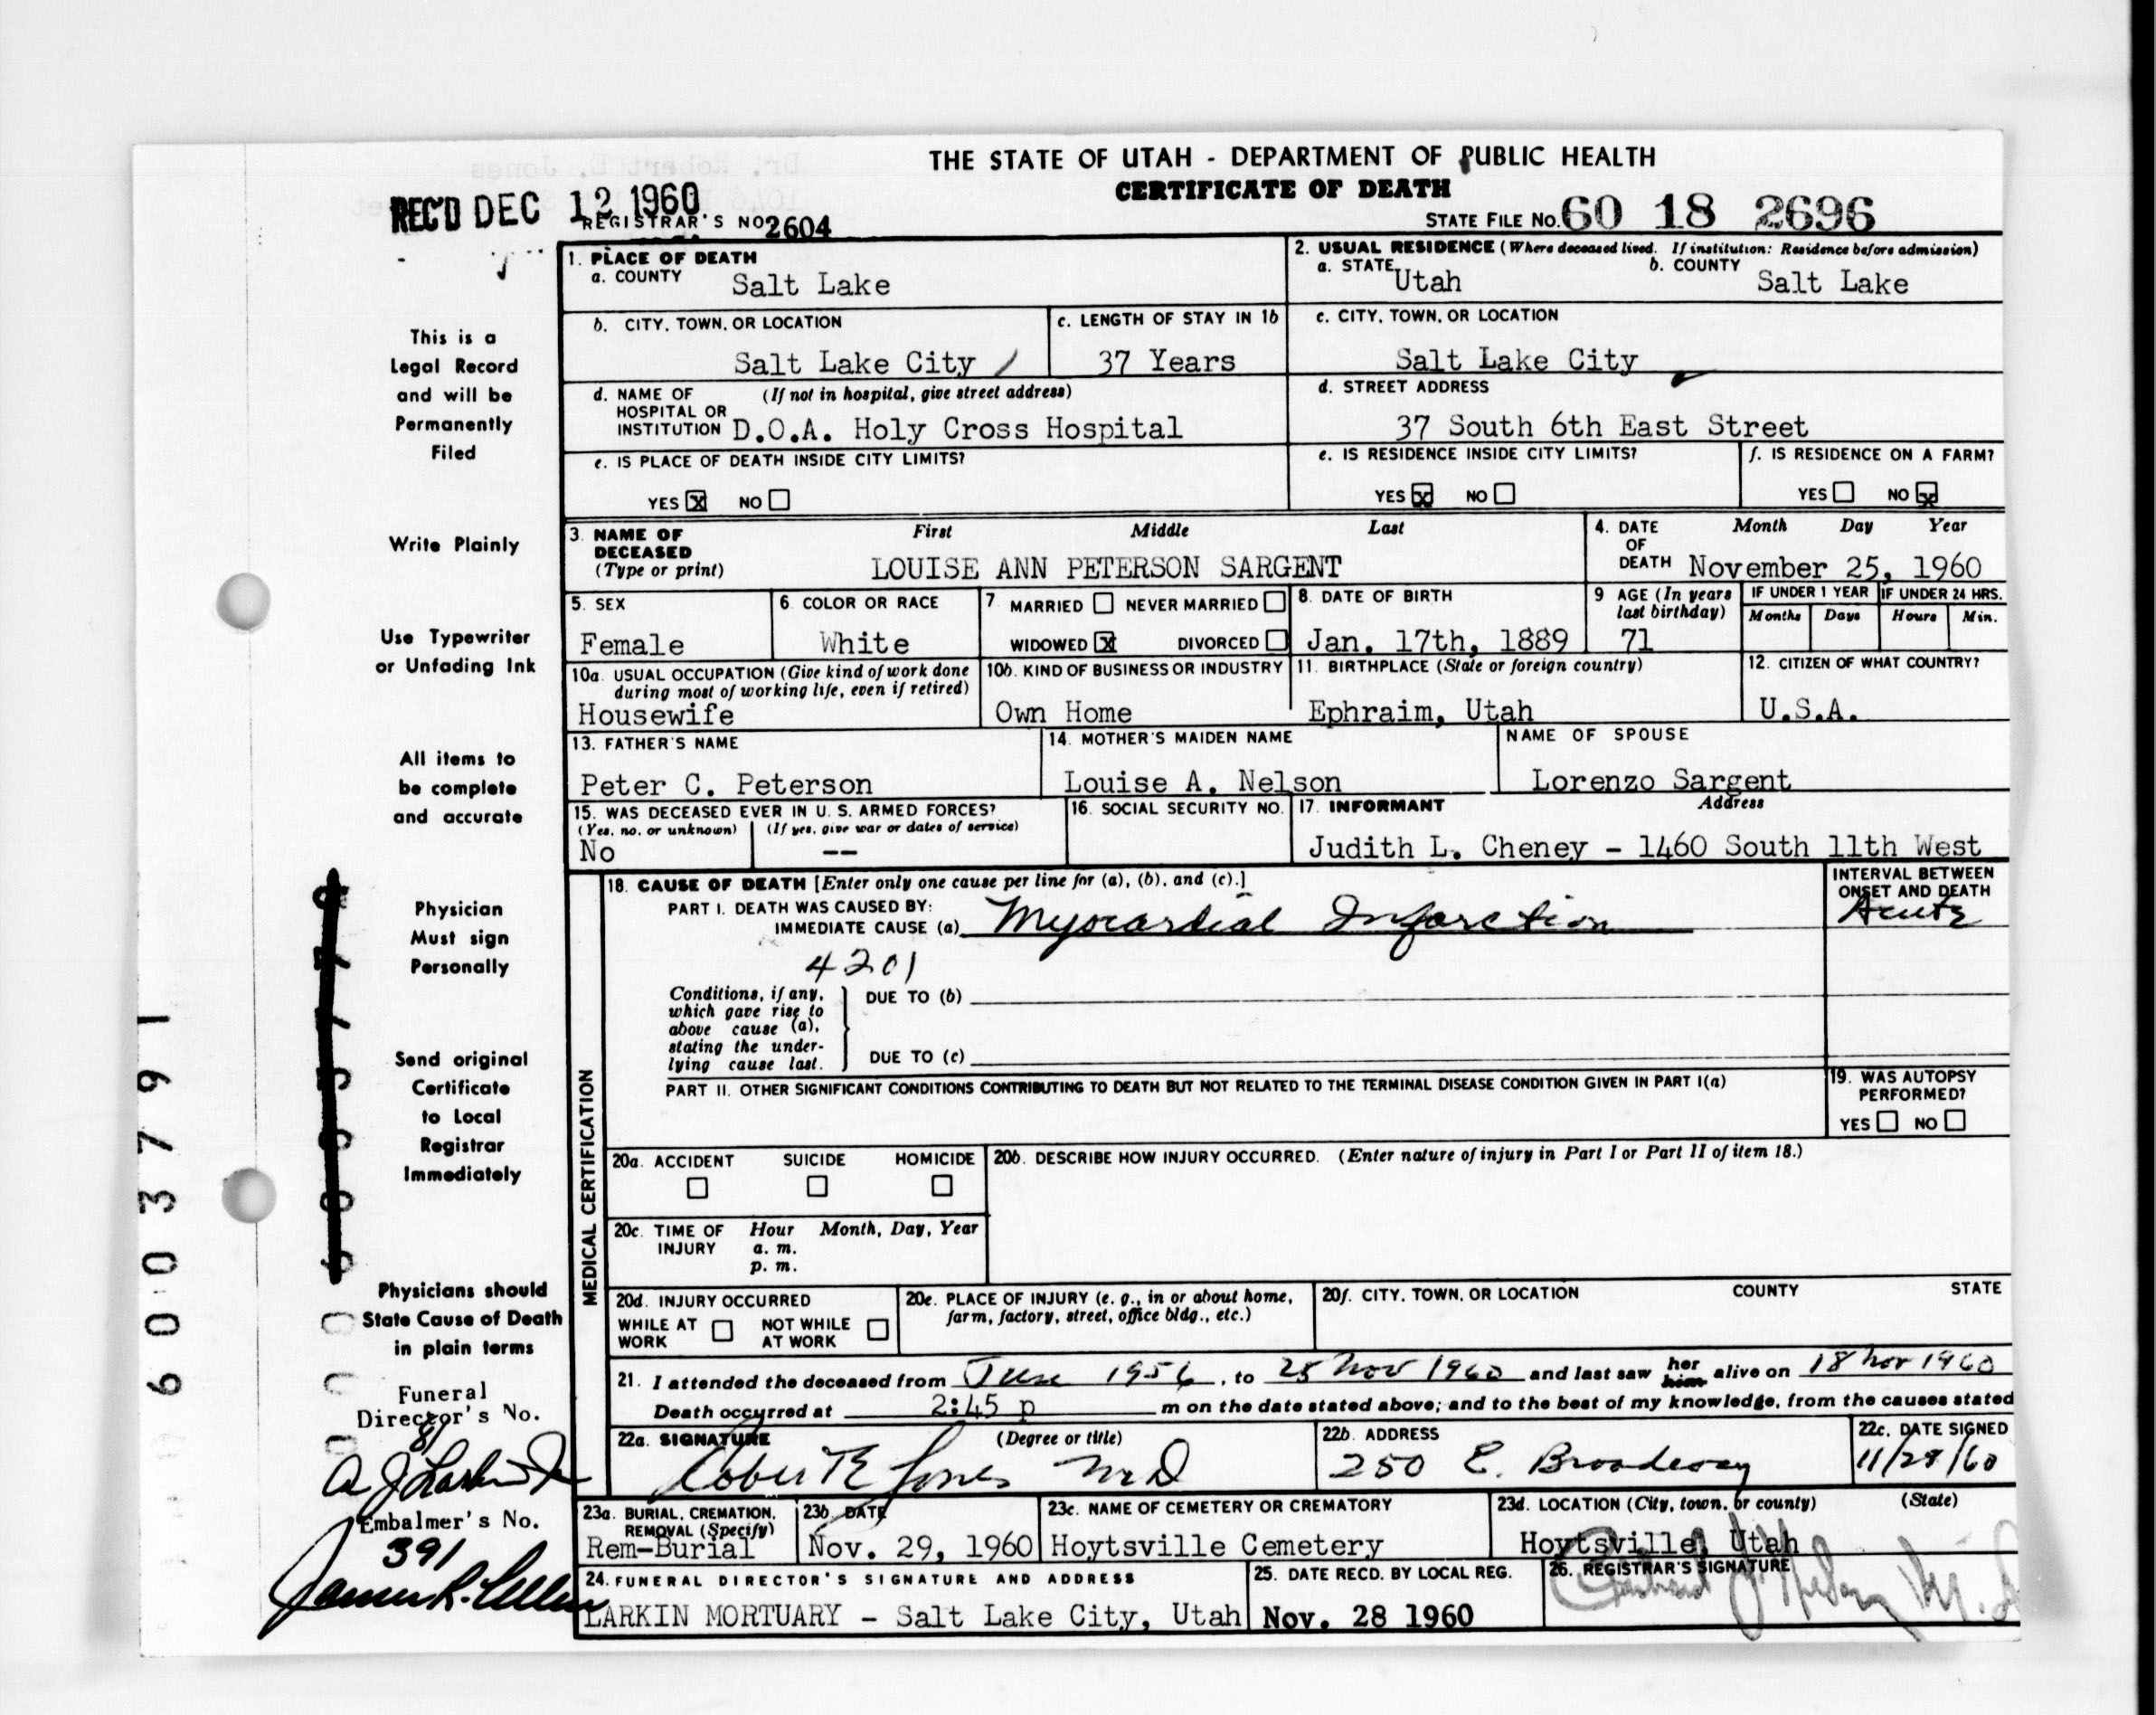 THE STATE OF UTAH - DEPARTMENT OF PUBLIC HEALTH
CERTIFICATE OF DEATH
REC'D DEC 12 1960
REGISTRAR'S NO 2604
STATE FILE NO. 60 18 2696
1. PLACE OF DEATH
a. COUNTY Salt Lake
2. USUAL RESIDENCE (Where deceased lived. If institution: Residence before admission)
a. STATE Utah b. COUNTY Salt Lake
b. CITY, TOWN, OR LOCATION Salt Lake City
c. LENGTH OF STAY IN 1b 37 Years
c. CITY, TOWN, OR LOCATION Salt Lake City
d. NAME OF HOSPITAL OR INSTITUTION (If not in hospital, give street address) D.O.A. Holy Cross Hospital
d. STREET ADDRESS 37 South 6th East Street
e. IS PLACE OF DEATH INSIDE CITY LIMITS?
YES X NO
e. IS RESIDENCE INSIDE CITY LIMITS?
YES X NO
f. IS RESIDENCE ON A FARM?
YES NO X
3. NAME OF DECEASED (Type or print) First Middle Last
LOUISE ANN PETERSON SARGENT
4. DATE OF DEATH Month Day Year
November 25, 1960
5. SEX Female
6. COLOR OR RACE White
7 MARRIED NEVER MARRIED
WIDOWED X DIVORCED
8. DATE OF BIRTH Jan. 17th, 1889
9 AGE (In years last birthday) 71
IF UNDER 1 YEAR Months Days
IF UNDER 24 HRS. Hours Min.
10a. USUAL OCCUPATION (Give kind of work done during most of working life, even if retired)
Housewife
10b. KIND OF BUSINESS OR INDUSTRY
Own Home
11. BIRTHPLACE (State or foreign country)
Ephraim, Utah
12. CITIZEN OF WHAT COUNTRY?
U.S.A.
13. FATHER'S NAME
Peter C. Peterson
14. MOTHER'S MAIDEN NAME
Louise A. Nelson
NAME OF SPOUSE
Lorenzo Sargent
15. WAS DECEASED EVER IN U. S. ARMED FORCES?
(Yes, no, or unknown) (If yes, give war or dates of service)
No --
16. SOCIAL SECURITY NO.
17. INFORMANT Address
Judith L. Cheney - 1460 South 11th West
MEDICAL CERTIFICATION
18. CAUSE OF DEATH [Enter only one cause per line for (a), (b), and (c).]
PART I. DEATH WAS CAUSED BY:
IMMEDIATE CAUSE (a) Myocardial Infarction
INTERVAL BETWEEN ONSET AND DEATH
Acute
4201
Conditions, if any, which gave rise to above cause (a), stating the underlying cause last.
DUE TO (b)
DUE TO (c)
PART II. OTHER SIGNIFICANT CONDITIONS CONTRIBUTING TO DEATH BUT NOT RELATED TO THE TERMINAL DISEASE CONDITION GIVEN IN PART I(a)
19. WAS AUTOPSY PERFORMED?
YES NO
20a. ACCIDENT SUICIDE HOMICIDE
20b. DESCRIBE HOW INJURY OCCURRED. (Enter nature of injury in Part I or Part II of item 18.)
20c. TIME OF INJURY Hour Month, Day, Year
a. m.
p. m.
20d. INJURY OCCURRED
WHILE AT WORK NOT WHILE AT WORK
20e. PLACE OF INJURY (e. g., in or about home, farm, factory, street, office bldg., etc.)
20f. CITY, TOWN, OR LOCATION COUNTY STATE
21. I attended the deceased from June 1956, to 25 Nov 1960 and last saw her him alive on 18 Nov 1960
Death occurred at 2:45 p m on the date stated above; and to the best of my knowledge, from the causes stated
22a. SIGNATURE (Degree or title)
Robert E Jones MD
22b. ADDRESS
250 E. Broadway
22c. DATE SIGNED
11/28/60
23a. BURIAL, CREMATION, REMOVAL (Specify)
Rem-Burial
23b. DATE
Nov. 29, 1960
23c. NAME OF CEMETERY OR CREMATORY
Hoytsville Cemetery
23d. LOCATION (City, town, or county) (State)
Hoytsville, Utah
24. FUNERAL DIRECTOR'S SIGNATURE AND ADDRESS
LARKIN MORTUARY - Salt Lake City, Utah
25. DATE RECD. BY LOCAL REG.
Nov. 28 1960
26. REGISTRAR'S SIGNATURE
This is a
Legal Record
and will be
Permanently
Filed
Write Plainly
Use Typewriter
or Unfading Ink
All items to
be complete
and accurate
Physician
Must sign
Personally
Send original
Certificate
to Local
Registrar
Immediately
Physicians should
State Cause of Death
in plain terms
Funeral
Director's No.
81
Embalmer's No.
391
6003791